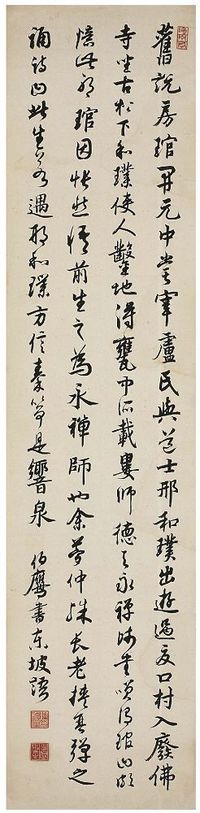 舊說房琯開元中嘗宰盧氏與道士邢和璞出遊過夏口村入廢佛
寺坐古松下和璞使人鑿地得甕中所藏婁師德與永禪師書笑謂琯曰頗
憶此耶琯因悵然悟前生之為永禪師也余夢仲殊長老挾琴彈之
誦詩曰此生若遇邢和璞方信秦箏是響泉 伯鷹書東坡語